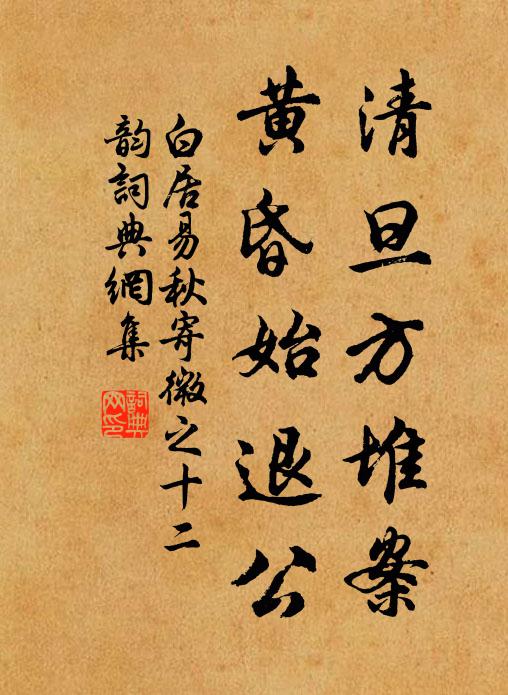 清旦方堆案
黄昏始退公
白居易秋寄微之十二
韵詞典網集
詞典
网印